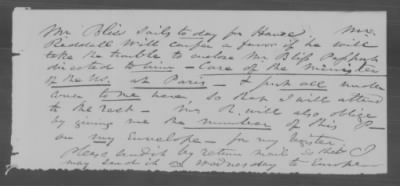 Mr Bliss sails to day for Havre, Mr.
Riddell will confer a favor if he will
take the trouble to enclose Mr Bliss Passport
directed to him - Care of the Minister
of the U.S. at Paris - & put all under
cover to me here, so that I will attend
to the rest - Mr R. will also oblige
by giving me the number of this P-
on my Envelope - for my register
Please send it by return mail so that I
may send it on Wednesday to Europe